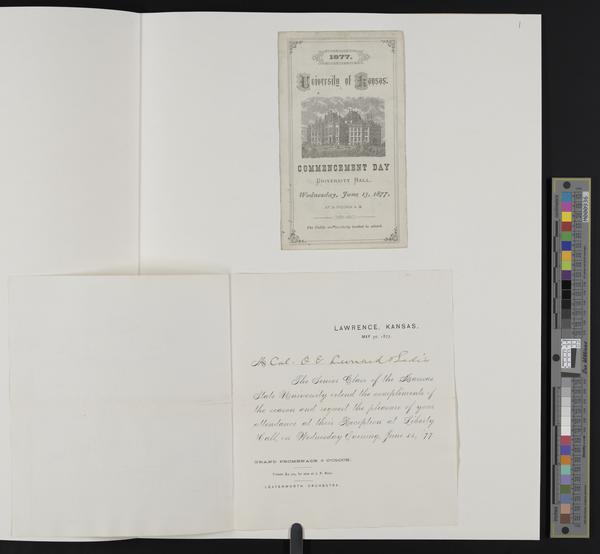 1
1877.
University of Kansas.
COMMENCEMENT DAY
UNIVERSITY HALL,
Wednesday, June 13, 1877,
The Public are invited to attend.
LAWRENCE, KANSAS,
MAY 30, 1877.
Col. O. E.
The Senior Class of the Kansas
State University extend the compliments of
the season and request the pleasure of your
attendance at their Reception at Liberty
Hall, on Wednesday Evening, June 13, 77
GRAND PROMENADE
LEAVENWORTH ORCHESTRA.